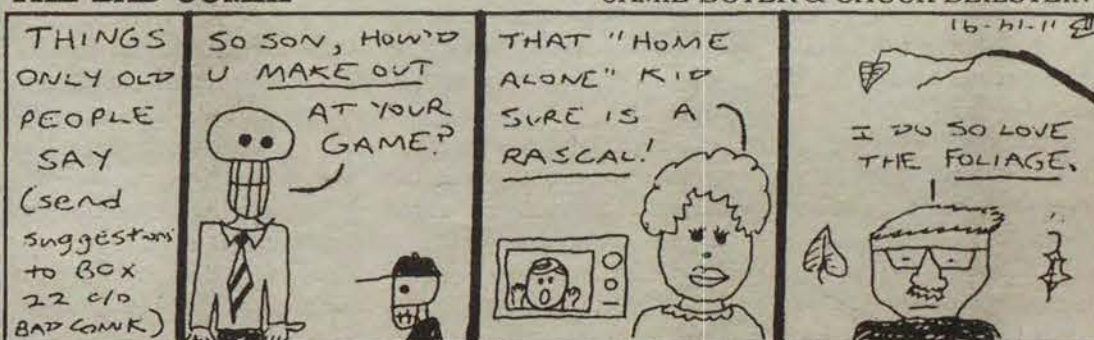 THINGS
ONLY OLD
PEOPLE
SAY
(send
suggestions
to BOX
22 c/o
BAD COMIK)
SO SON, HOW'D
U MAKE OUT
AT YOUR
GAME?
THAT "HOME
ALONE" KID
SURE IS A
RASCAL!
11-14-91
I DO SO LOVE
THE FOLIAGE.